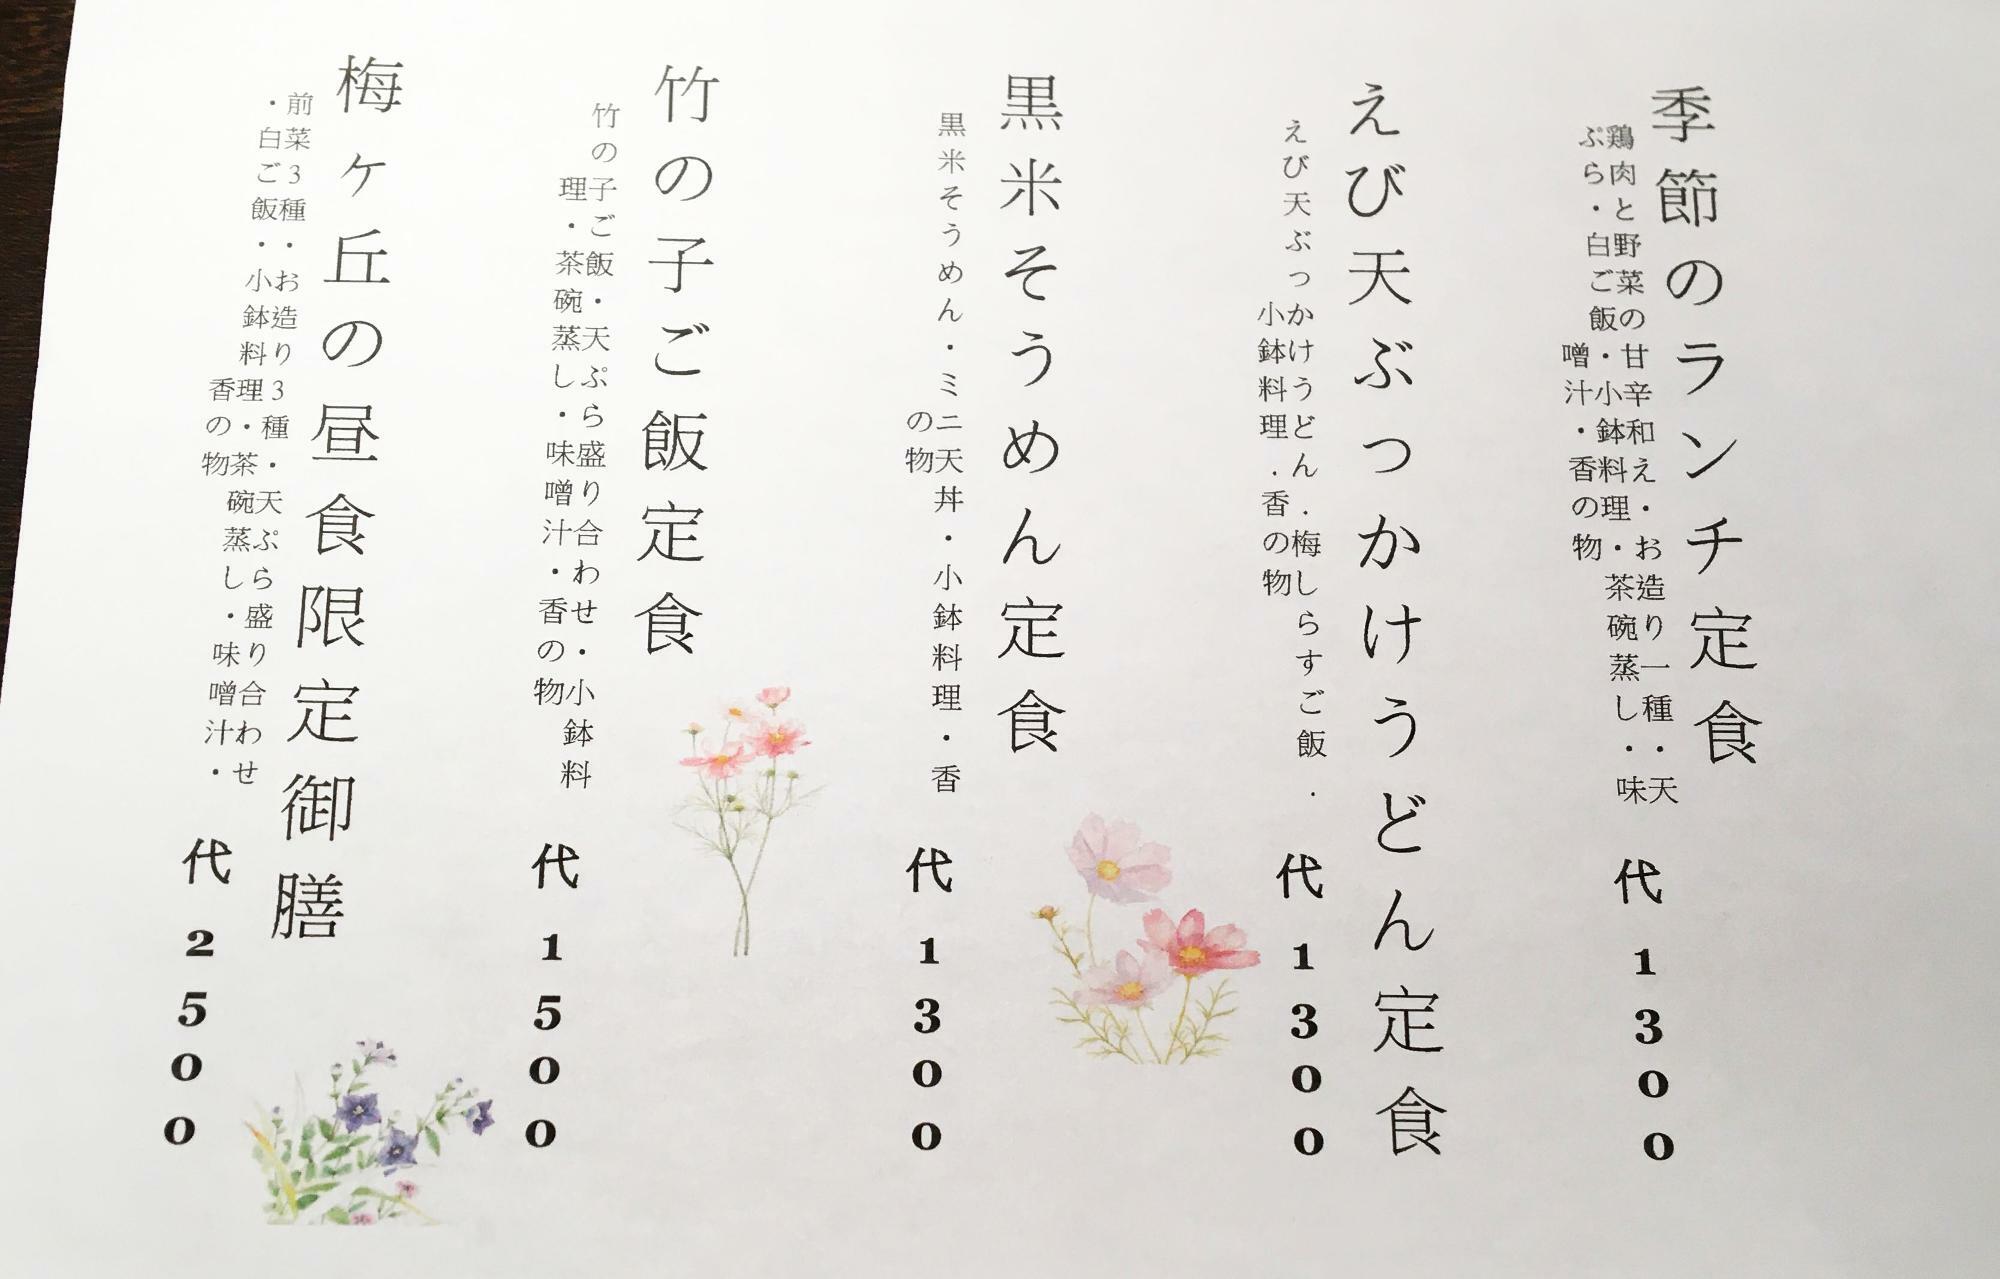 季節のランチ定食
鶏肉と野菜の甘辛和え・お造り一種・・天
ぷら・白ご飯・小鉢料理・茶碗蒸し・・味
噌汁・香の物
代 1300
えび天ぶっかけうどん定食
えび天ぶっかけうどん.梅しらすご飯.
小鉢料理.香の物
代 1300
黒米そうめん定食
黒米そうめん・ミニ天丼・小鉢料理・香
の物
代 1300
竹の子ご飯定食
竹の子ご飯・天ぷら盛り合わせ・小鉢料
理・茶碗蒸し・味噌汁・香の物
代 1500
梅ヶ丘の昼食限定御膳
前菜3種・お造り3種・天ぷら盛り合わせ
・白ご飯・小鉢料理・茶碗蒸し・味噌汁・
香の物
代 2500